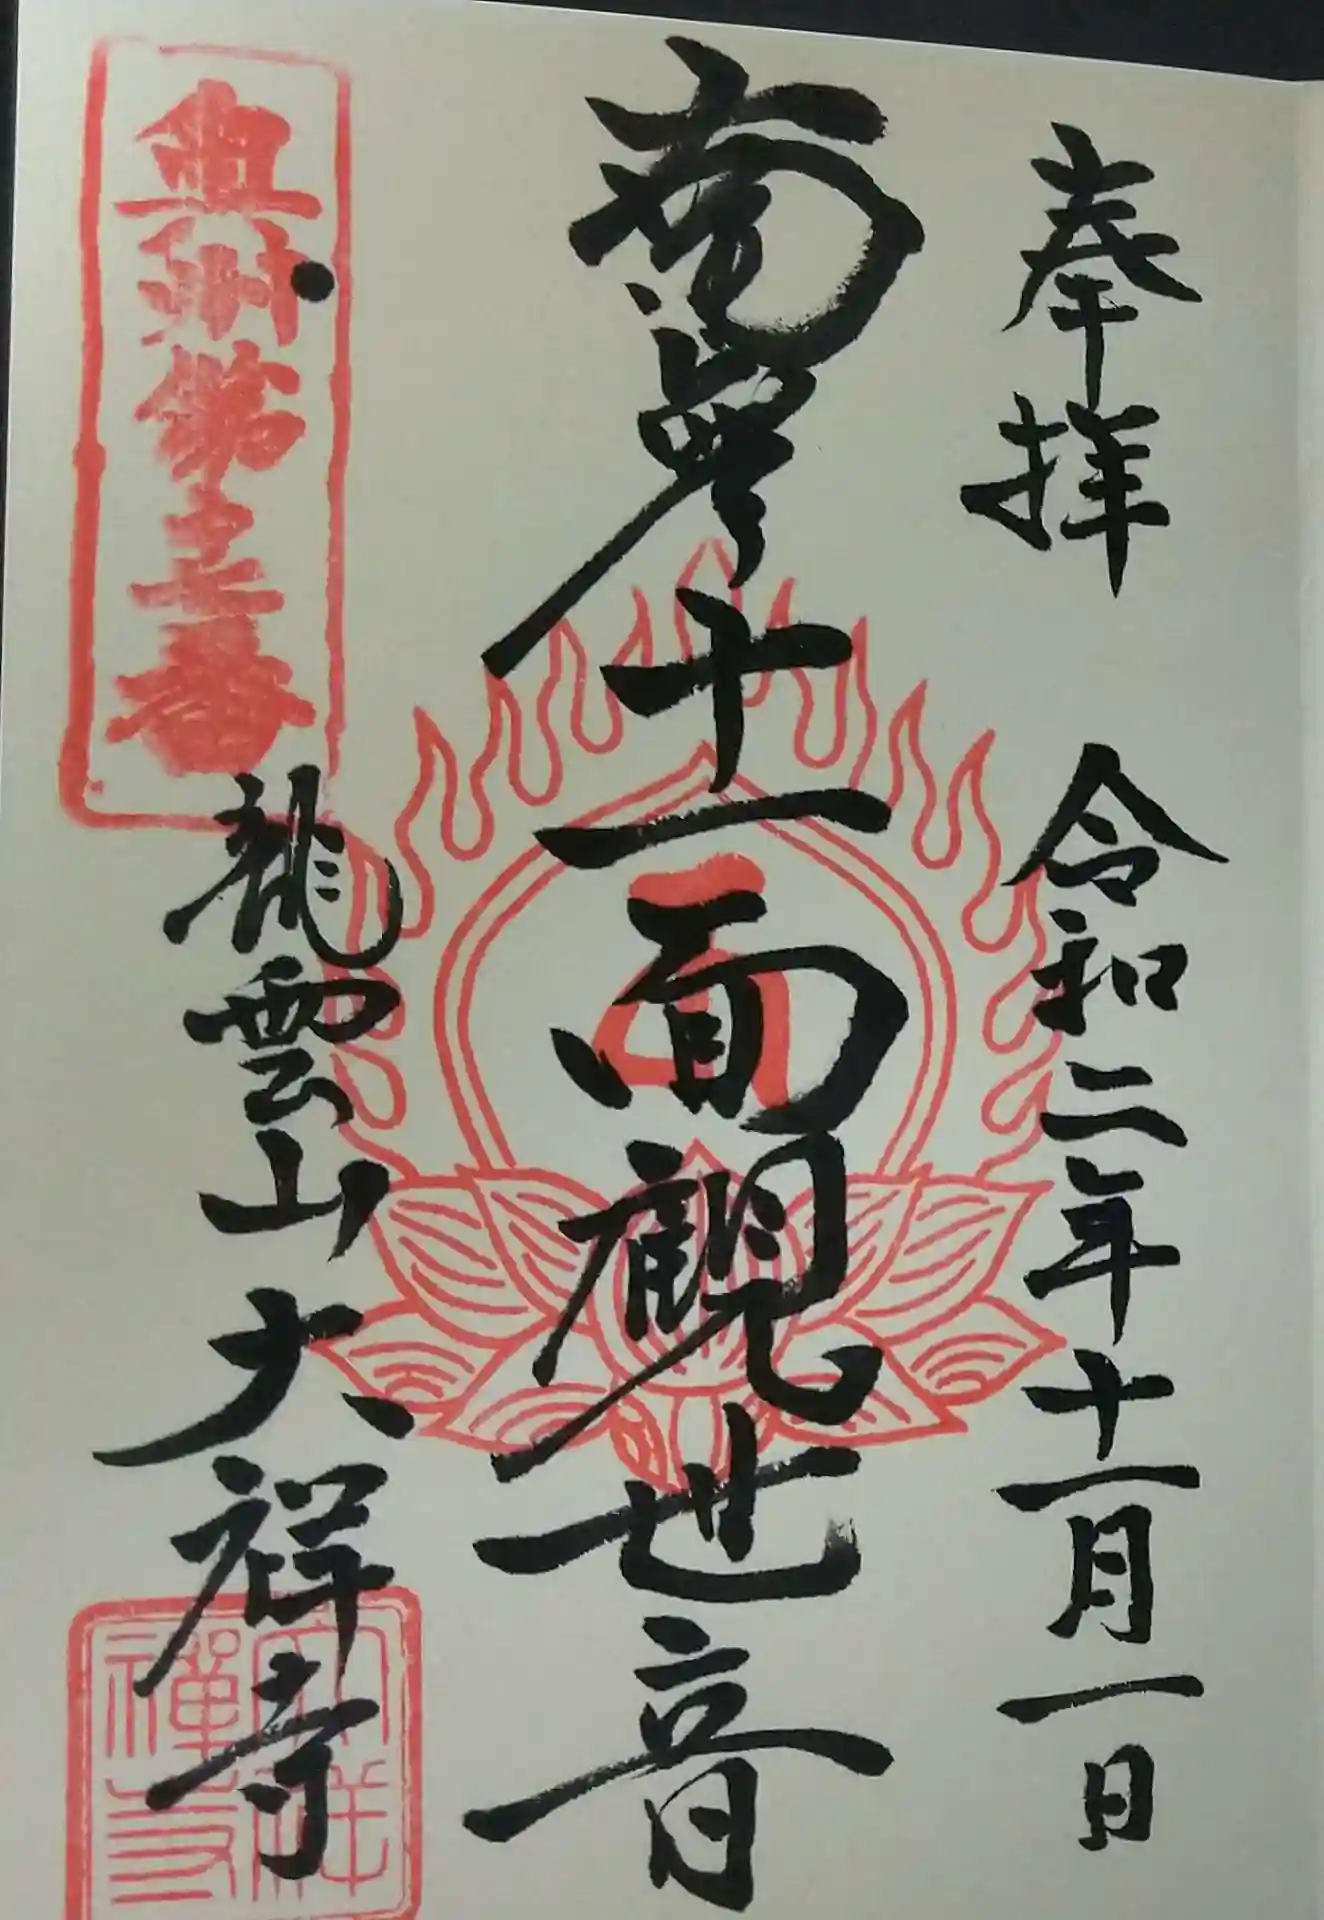 奉拝 令和二年十一月一日
南無十一面觀世音
奥州第十七番
龍雲山 大祥寺
大祥禪寺